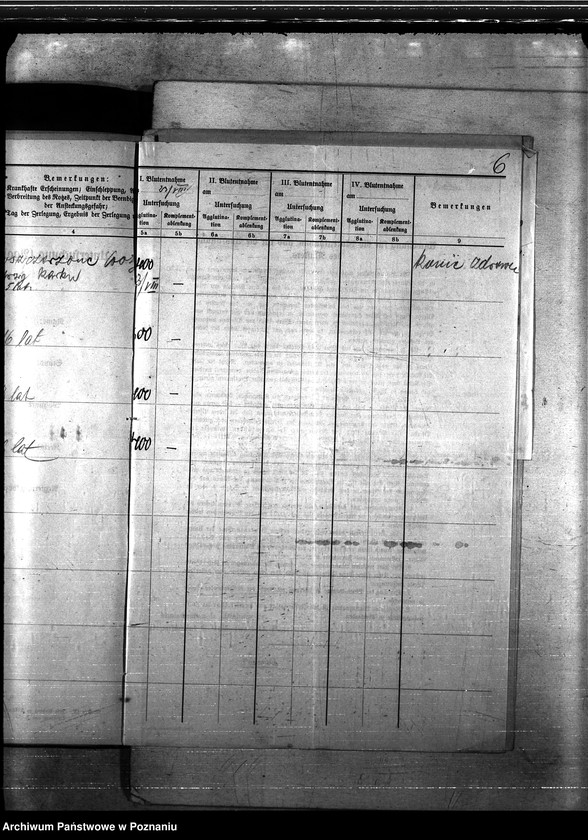 6
Bemerkungen:
Krankhafte Erscheinungen; Einschleppung,
Verbreitung des Rotzes, Zeitpunkt der Beendig
der Ansteckungsgefahr;
Tag der Zerlegung, Ergebnis der Zerlegung
4
I. Blutentnahme
Untersuchung
Agglutina-
tion
Komplement-
ablenkung
5a
5b
II. Blutentnahme
am
Untersuchung
Agglutina-
tion
Komplement-
ablenkung
6a
6b
III. Blutentnahme
am
Untersuchung
Agglutina-
tion
Komplement-
ablenkung
7a
7b
IV. Blutentnahme
am
Untersuchung
Agglutina-
tion
Komplement-
ablenkung
8a
8b
Bemerkungen
9
lat
—
lat
—
lat
—
—
Archiwum Państwowe w Poznaniu